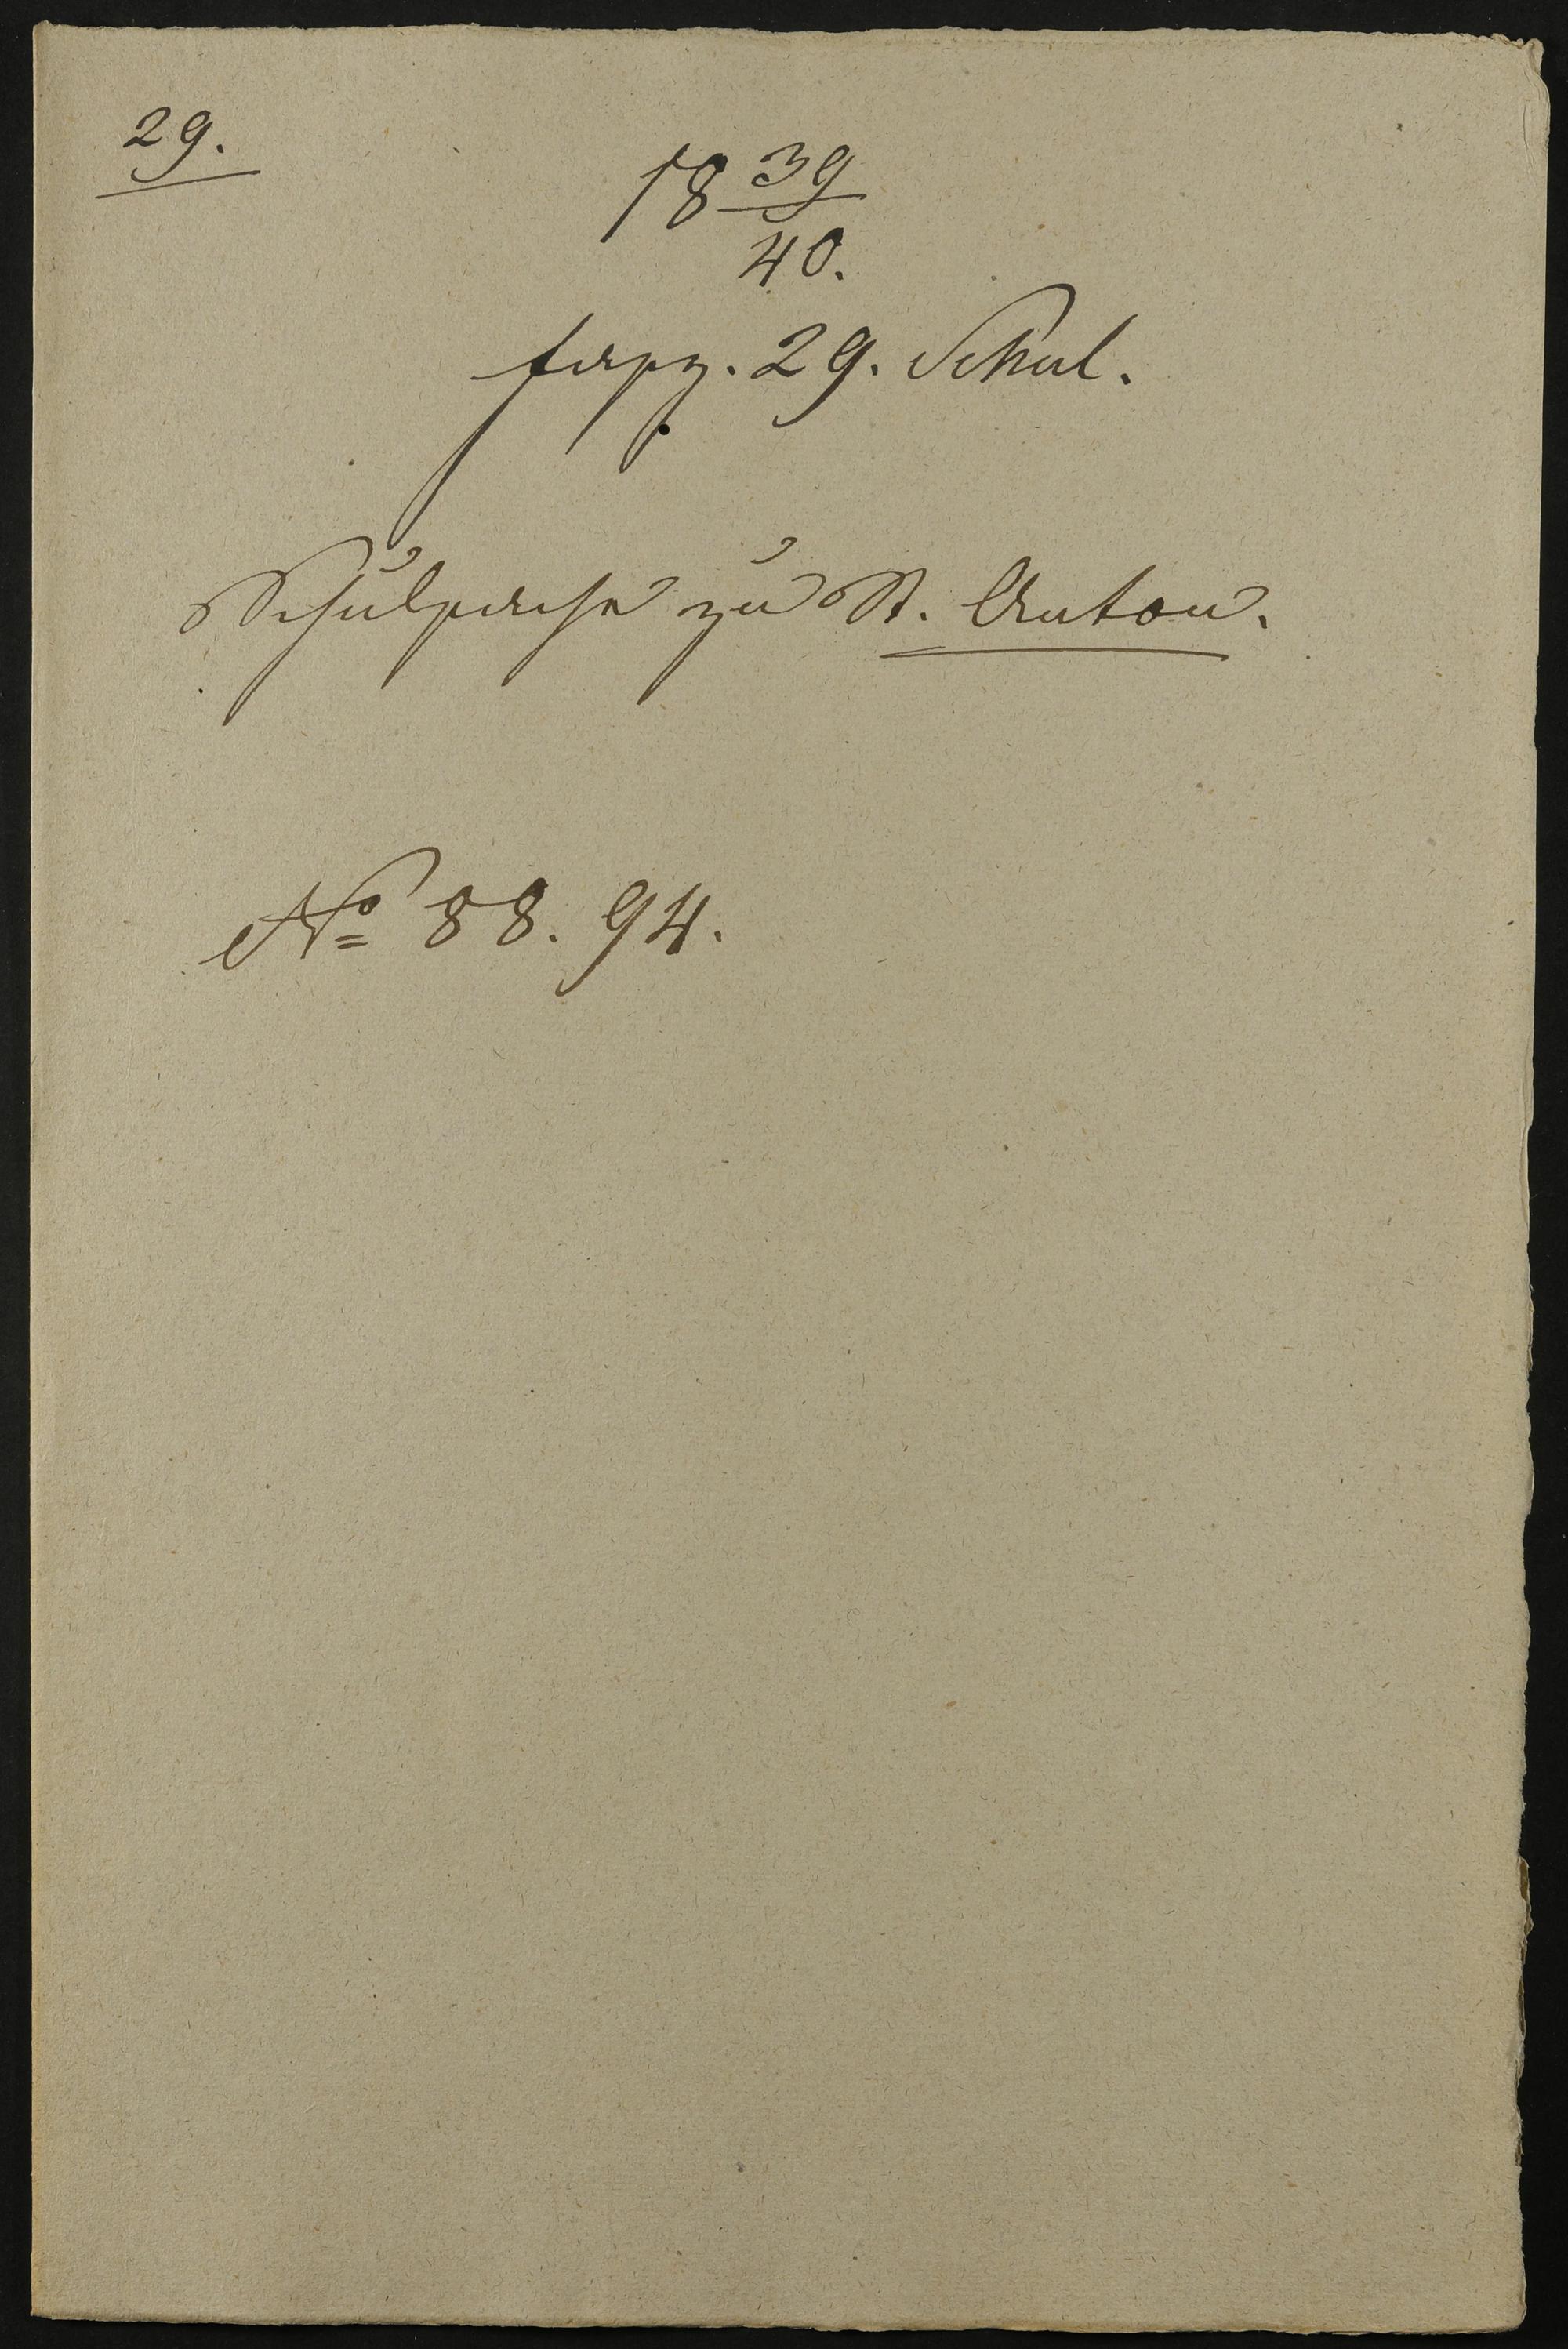 29.
18 39/40.
fasz. 29. Schul.
Schulsache zu St. Anton.
No 88. 94.